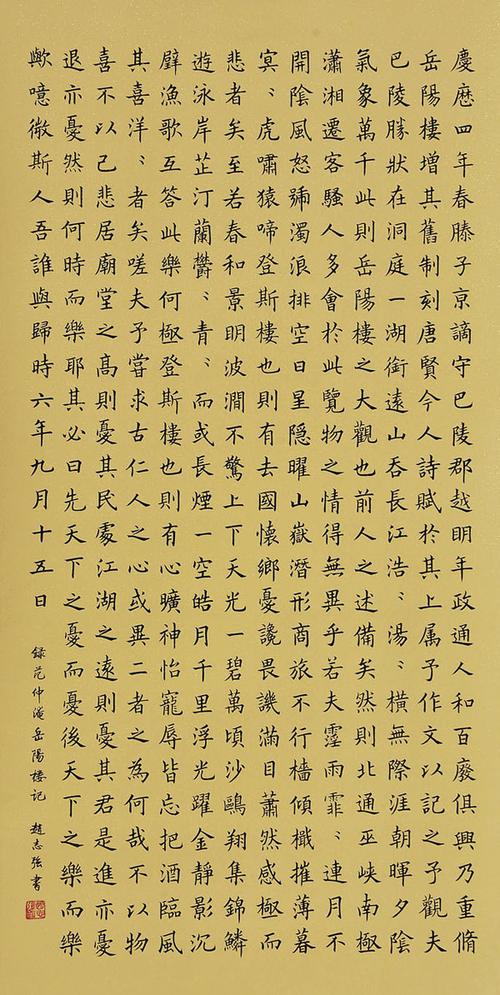 慶曆四年春滕子京謫守巴陵郡越明年政通人和百廢俱興乃重脩
岳陽樓增其舊制刻唐賢今人詩賦於其上属予作文以記之予觀夫
巴陵勝狀在洞庭一湖銜遠山吞長江浩〻湯〻橫無際涯朝暉夕陰
氣象萬千此則岳陽樓之大觀也前人之述備矣然則北通巫峽南極
瀟湘遷客騷人多會於此覽物之情得無異乎若夫霪雨霏〻連月不
開陰風怒號濁浪排空日星隱曜山嶽潛形商旅不行檣傾檝摧薄暮
冥〻虎嘯猿啼登斯樓也則有去國懷鄉憂讒畏譏滿目蕭然感極而
悲者矣至若春和景明波瀾不驚上下天光一碧萬頃沙鷗翔集錦鱗
遊泳岸芷汀蘭欝〻青〻而或長煙一空皓月千里浮光躍金靜影沉
璧漁歌互答此樂何極登斯樓也則有心曠神怡寵辱皆忘把酒臨風
其喜洋〻者矣嗟夫予嘗求古仁人之心或異二者之為何哉不以物
喜不以己悲居廟堂之高則憂其民處江湖之遠則憂其君是進亦憂
退亦憂然則何時而樂耶其必曰先天下之憂而憂後天下之樂而樂
歟噫微斯人吾誰與歸時六年九月十五日
録范仲淹岳陽樓記 趙志強書